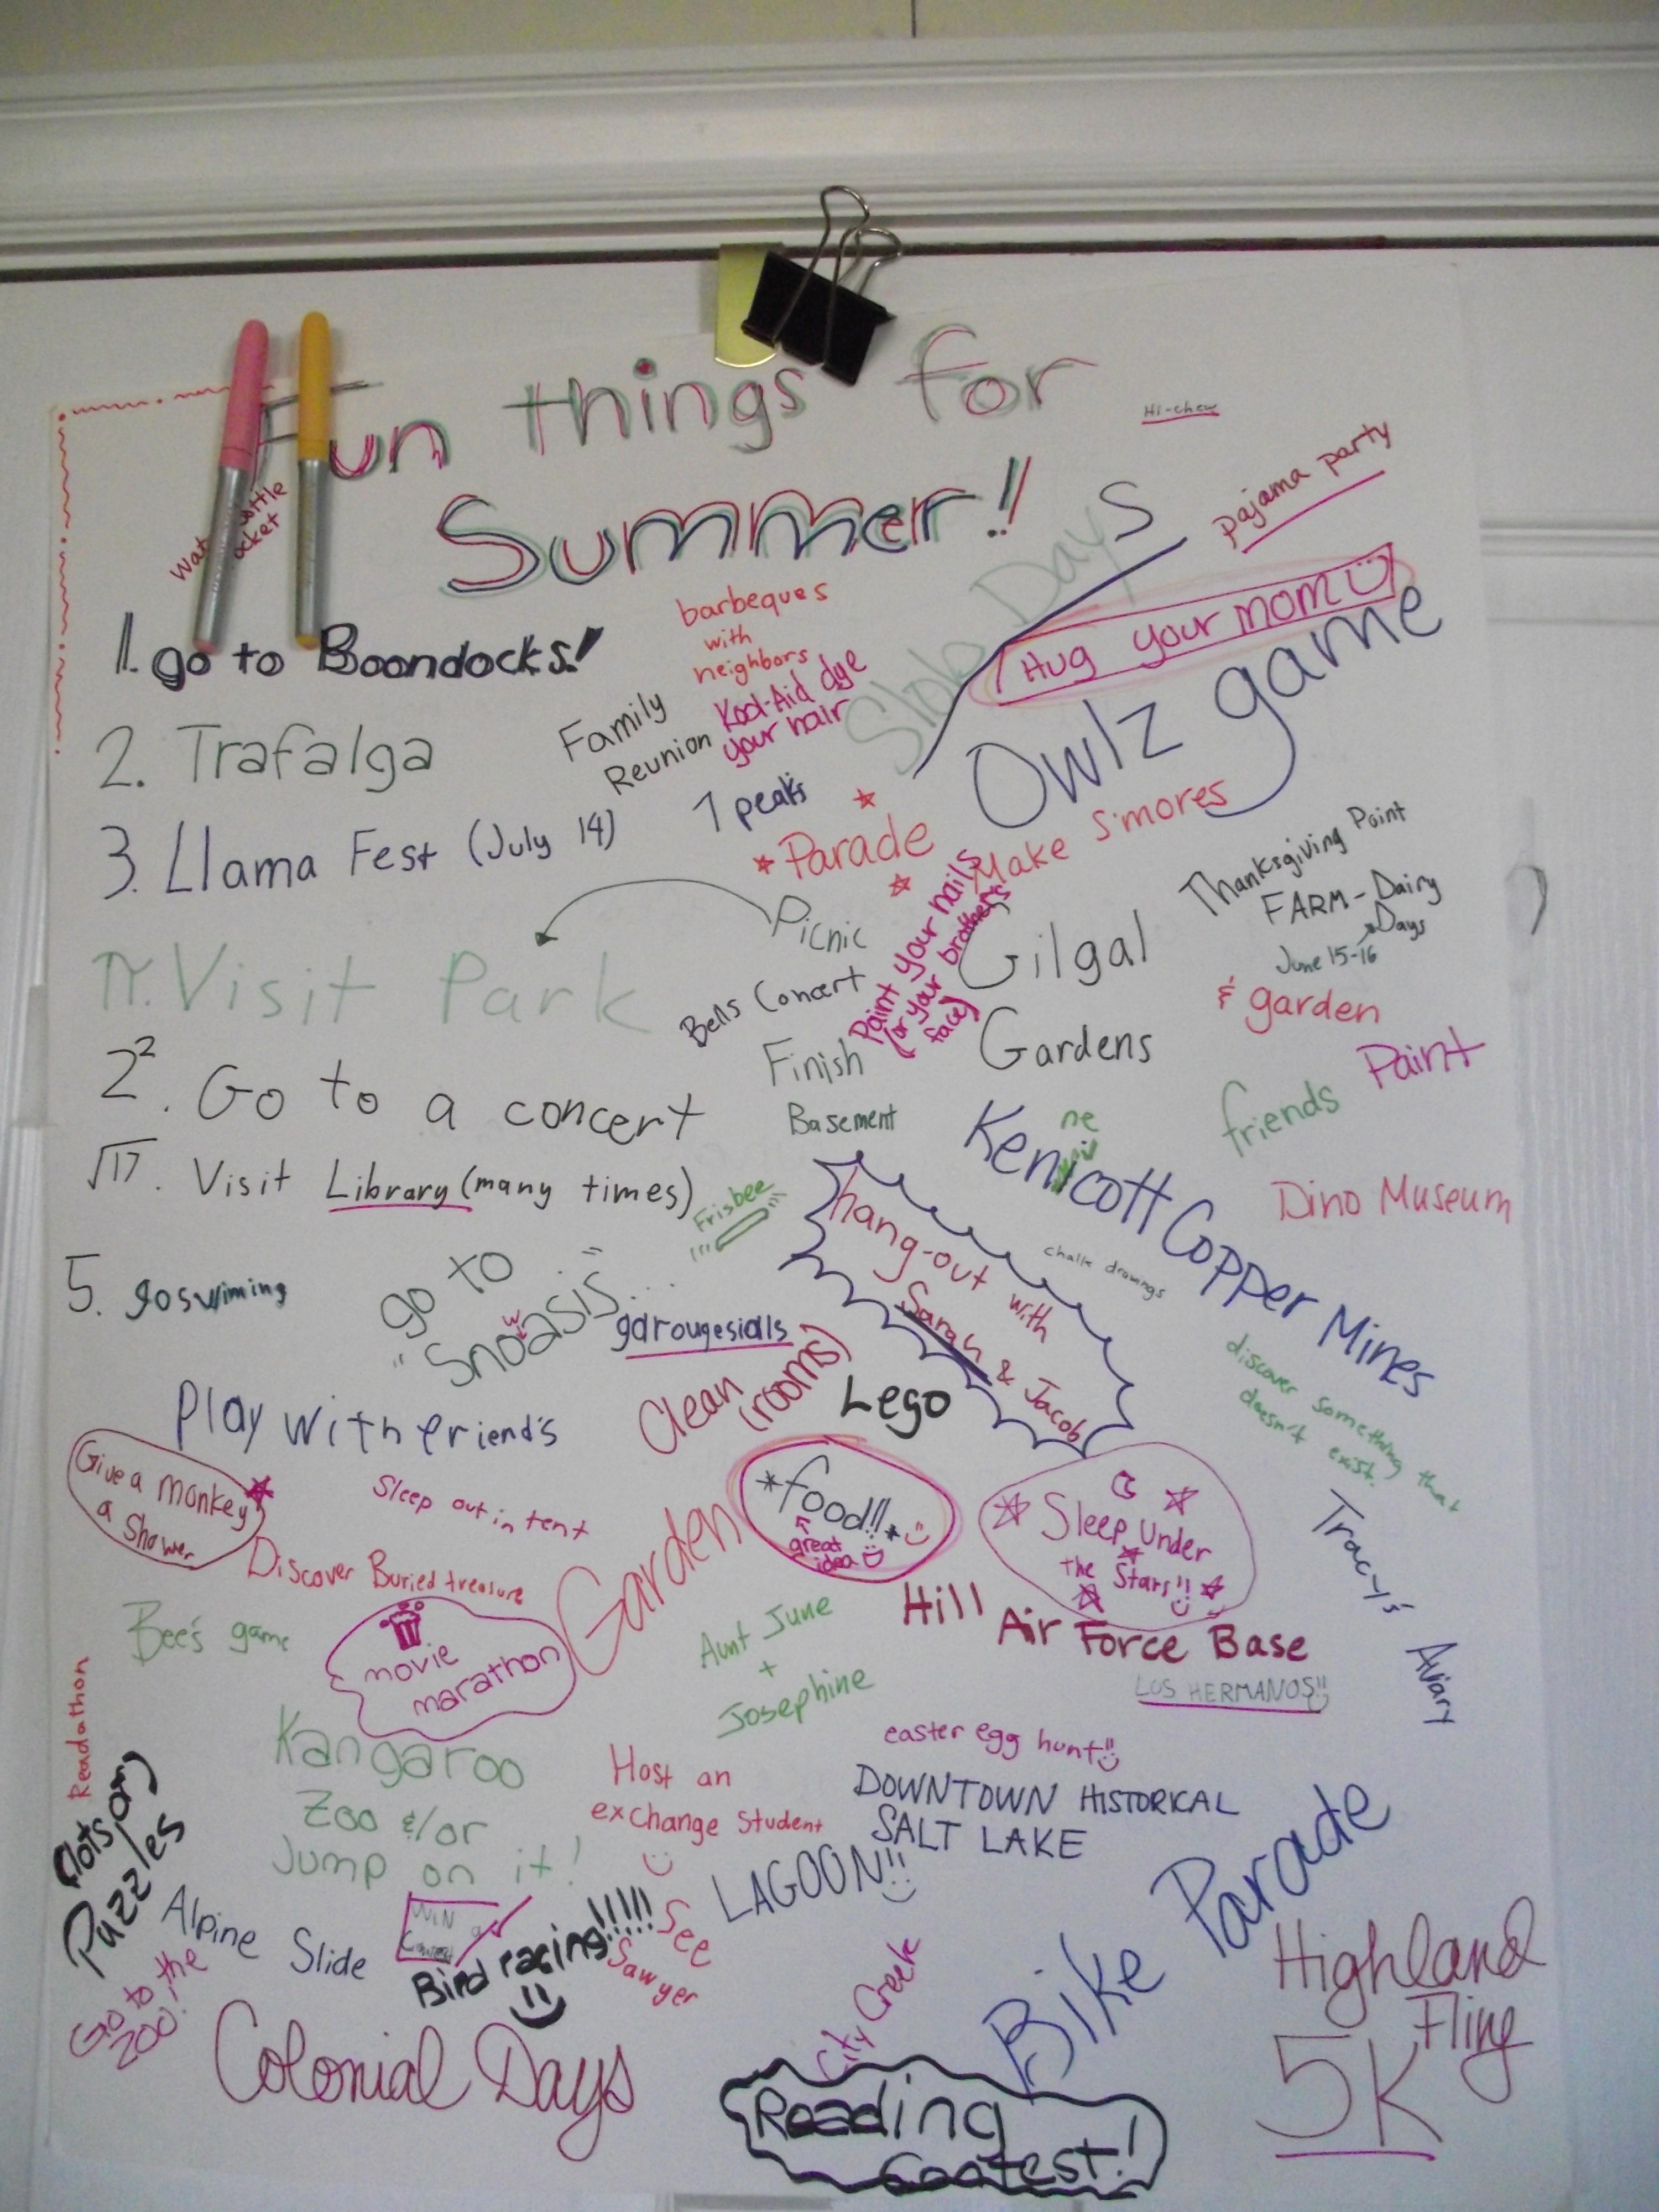 Fun things for
Summer!!
Hi-chew
pajama party
Slob Days
Hug your mom
Owlz game
1. go to Boondocks!
barbeques
with
neighbors
Kool-Aid dye
your hair
2. Trafalga
Family
Reunion
3. Llama Fest (July 14)
7 peaks
Parade
Make S'mores
Thanksgiving Point
FARM - Dairy
Days
June 15-16
& garden
Picnic
Paint your nails
(or your brother's
face)
Gilgal
Gardens
π. Visit Park
Bells Concert
Finish
Basement
2². Go to a concert
friends
Paint
√17. Visit Library (many times)
Frisbee
Kenicott Copper Mines
ne
Dino Museum
hang-out with
Sarah & Jacob
chalk drawings
5. go swiming
go to
"Snoasis"...
w
garougesialls
Clean
(rooms)
Lego
discover something that
doesn't exist.
Play with friend's
Give a monkey
a shower
Sleep out in tent
*food!!*
great
idea
Sleep Under
the Stars!!
Tracy's Aviary
Discover Buried treasure
Garden
Hill Air Force Base
Bee's game
movie
marathon
Aunt June
+
Josephine
LOS HERMANOS!!
Readathon
Kangaroo
Zoo &/or
Jump on it!
Host an
exchange Student
easter egg hunt!!
DOWNTOWN HISTORICAL
SALT LAKE
(lots of)
Puzzles
Alpine Slide
WIN a
Contest
Bird racing!!!!!
See
Sawyer
LAGOON!!
Bike Parade
Highland
Fling
5K
Go to the
zoo!
Colonial Days
City Creek
Reading
Contest!